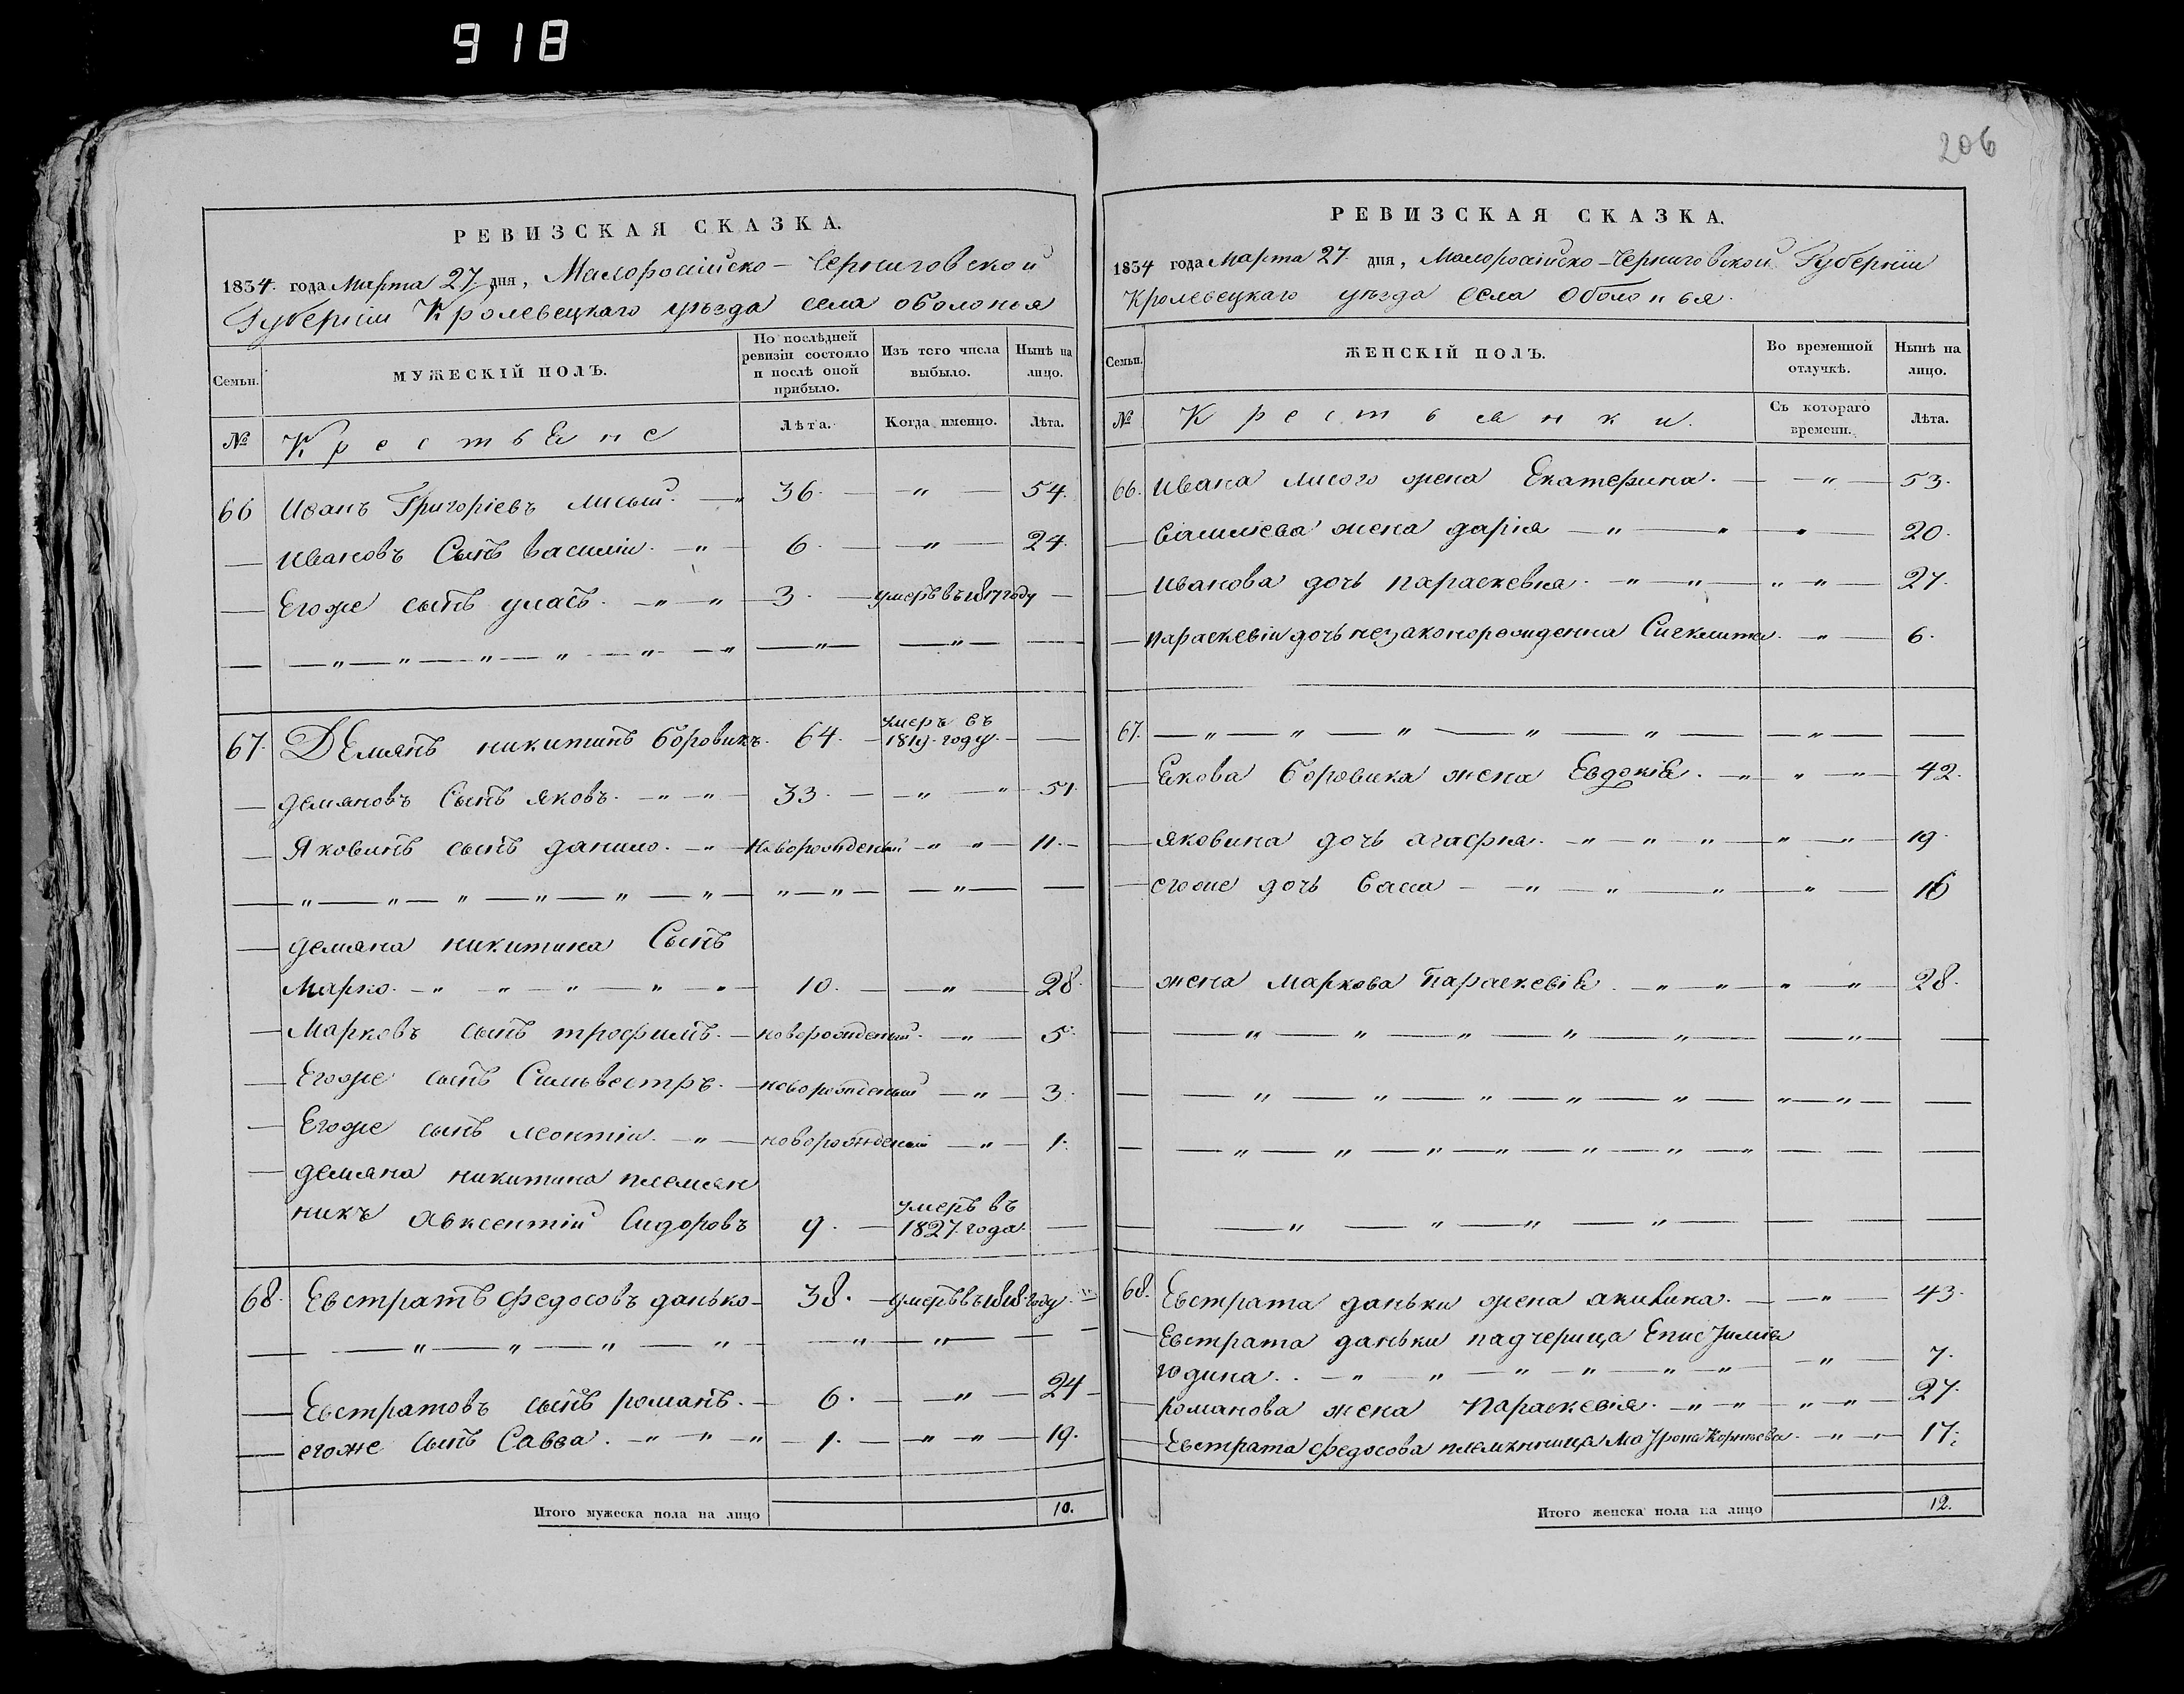 918
206
РЕВИЗСКАЯ СКАЗКА.
1834. года Марта 27 дня, Малоросійско-Черниговской
Губерніи Кролевецкаго уѣзда села оболонья
Семьи. МУЖЕСКІЙ ПОЛЪ. По послѣдней ревизіи состояло и послѣ оной прибыло. Изъ того числа выбыло. Нынѣ на лицо.
№ Крестьяне Лѣта. Когда именно. Лѣта.
66 Иванъ Григоріевъ лисый. — „ 36. — „ — 54.
— Ивановъ Сынъ василій. — „ — 6. — „ — 24.
— Егоже сынъ уласъ. — „ — „ 3. — умеръ въ 1817 году —
— — „ — „ — „ — „ — „ — „ — „ — — „ — —
67. Демянъ никитинъ боровикъ. 64. — умеръ въ 1819. году. — —
— демяновъ Сынъ яковъ. — „ — „ — 33. — „ — „ — 51.
— Яковинъ сынъ данило. — „ — новорожденый — „ „ — 11. —
— „ — „ — „ — „ — „ — „ — „ — „ — — „ — —
— демяна никитина Сынъ
Марко. — „ — „ — „ — „ — „ — 10. — — „ — 28.
— Марковъ сынъ трофимъ. — новорожденый. — „ — 5.
— Егоже сынъ Сильвестръ. — новорожденый — „ — 3.
— Егоже сынъ леонтій. — „ — новорожденій — „ — 1.
— демяна никитина племян
никъ Авксентій Сидоровъ 9. — умеръ въ 1827. года. —
68. Евстратъ федосовъ данько — 38. — умеръ въ 1818. году. —
— — „ — „ — „ — „ — — „ — „ — —
— Евстратовъ сынъ романъ. — 6. — „ — 24 —
— егоже сынъ Савва. — „ — „ — „ — 1. — „ — „ — 19.
Итого мужеска пола на лицо 10.
РЕВИЗСКАЯ СКАЗКА.
1834 года Марта 27. дня, Малоросійско-Черниговской Губерніи
Кролевецкаго уѣзда села Оболонья.
Семьи. ЖЕНСКІЙ ПОЛЪ. Во временной отлучкѣ. Нынѣ на лицо.
№ Крестьянки. Съ котораго времени. Лѣта.
66. Ивана лисого жена Екатерина. — — „ — 53.
— василиева жена дарія — „ — „ „ — 20.
— Иванова дочь параскевия. — „ — „ — „ „ — 27.
— параскевіи дочь незаконорожденна — „ — 6.
67. — „ — „ — „ — „ — „ — — „ — —
— Якова боровика жена Евдокія. — „ — „ — „ — 42.
— яковина дочь агафия. — „ — „ — „ — „ — „ — 19.
— егоже дочь Васса — „ — „ — „ — „ — 16
— жена маркова Параскевія. — „ — „ — „ — „ — 28.
— — „ — „ — „ — „ — „ — — „ — —
— — „ — „ — „ — „ — „ — „ — „ — „ — —
— — „ — „ — „ — „ — „ — „ — „ — — —
— — „ — „ — „ — „ — — —
68. Евстрата даньки жена акилина. — — „ — 43.
— Евстрата даньки падчерица
година. . — „ — „ — „ — „ — „ — „ — „ — 7.
— романова жена Параскевія. — „ — „ — „ — „ — 27.
— Евстрата федосова племянница — „ — 17.
Итого женска пола на лицо 12.